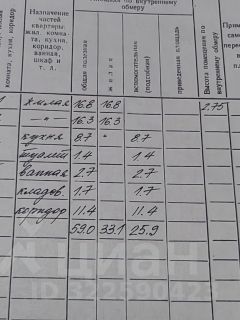 внутреннему
обмеру
Назначение
частей
квартиры:
жил. комна-
та, кухня,
коридор,
ванная,
шкаф и
т. д.
комната, кухня,
общую полезная
жилая
вспомогательная
(подсобная)
приведенная площадь
Высота помещений по
внутреннему обмеру
Жилая 16.8 16.8 2.75
—"— 16.3 16.3
кухня 8.7 " 8.7
туалет 1.4 1.4
ванная 2.7 2.7
кладов. 1.7 1.7
коридор 11.4 11.4
59.0 33.1 25.9
циан
ID 322590423